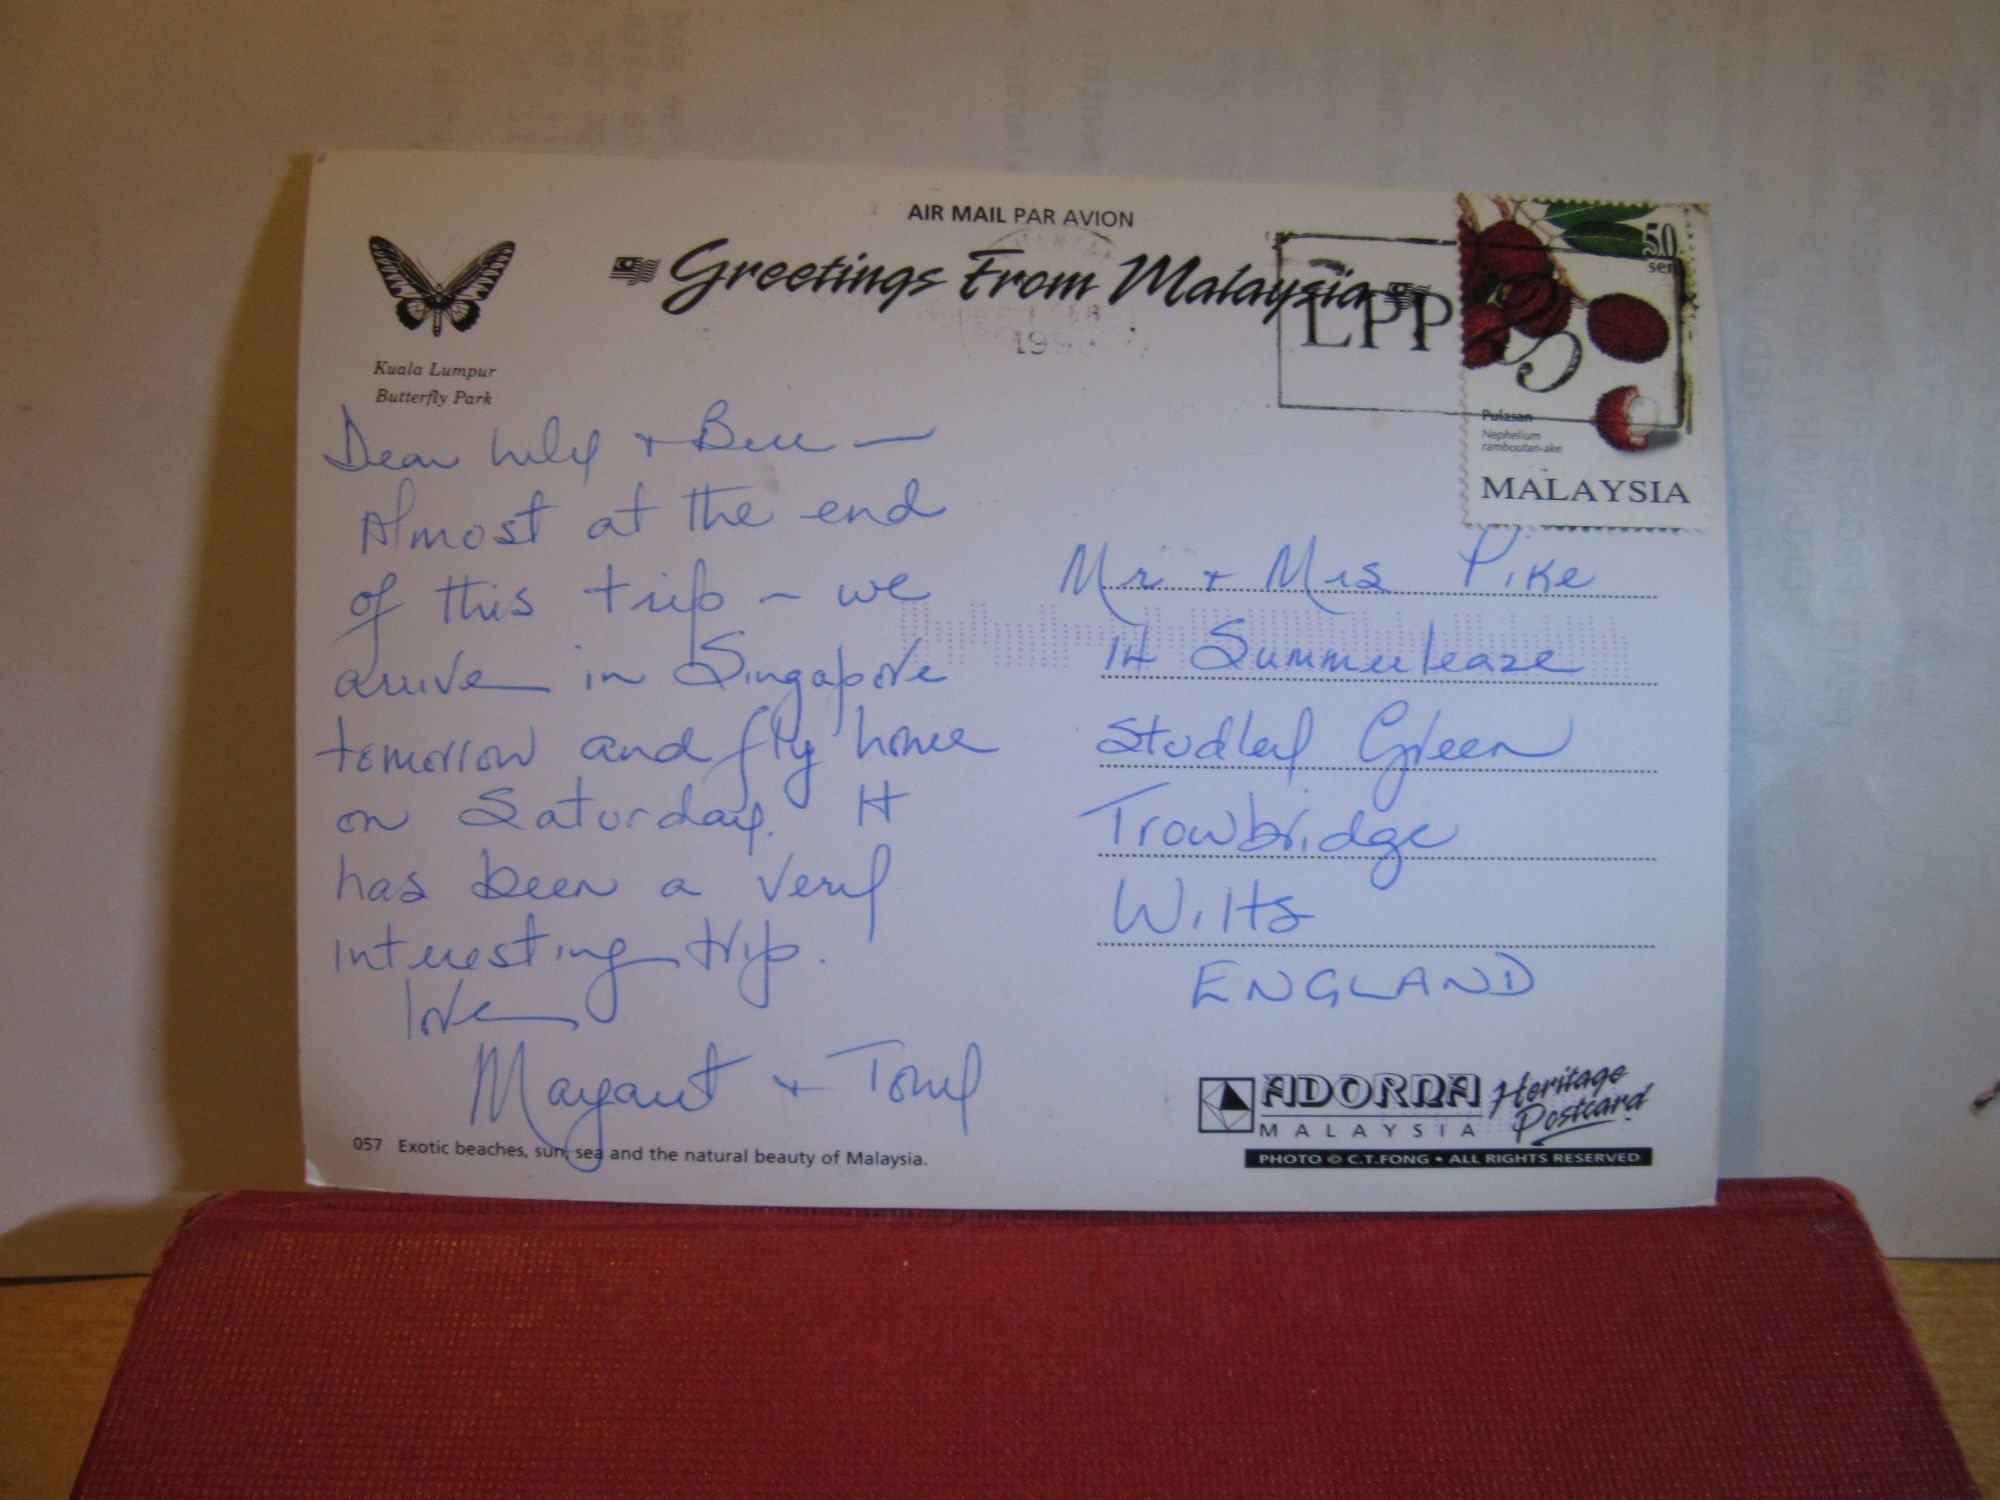 AIR MAIL PAR AVION
Greetings From Malaysia
Kuala Lumpur
Butterfly Park
LPP
50
sen
Pulasan
Nephelium
ramboutan-ake
MALAYSIA
Dear & Bill —
Almost at the end
of this trip – we
arrive in Singapore
tomorrow and fly home
on Saturday. It
has been a very
interesting trip.
love
Margaret & Tony
Mr & Mrs Pike
14 Summerleaze
Studley Green
Trowbridge
Wilts
ENGLAND
057 Exotic beaches, sun, sea and the natural beauty of Malaysia.
ADORNA
MALAYSIA
Heritage
Postcard
PHOTO © C.T.FONG • ALL RIGHTS RESERVED